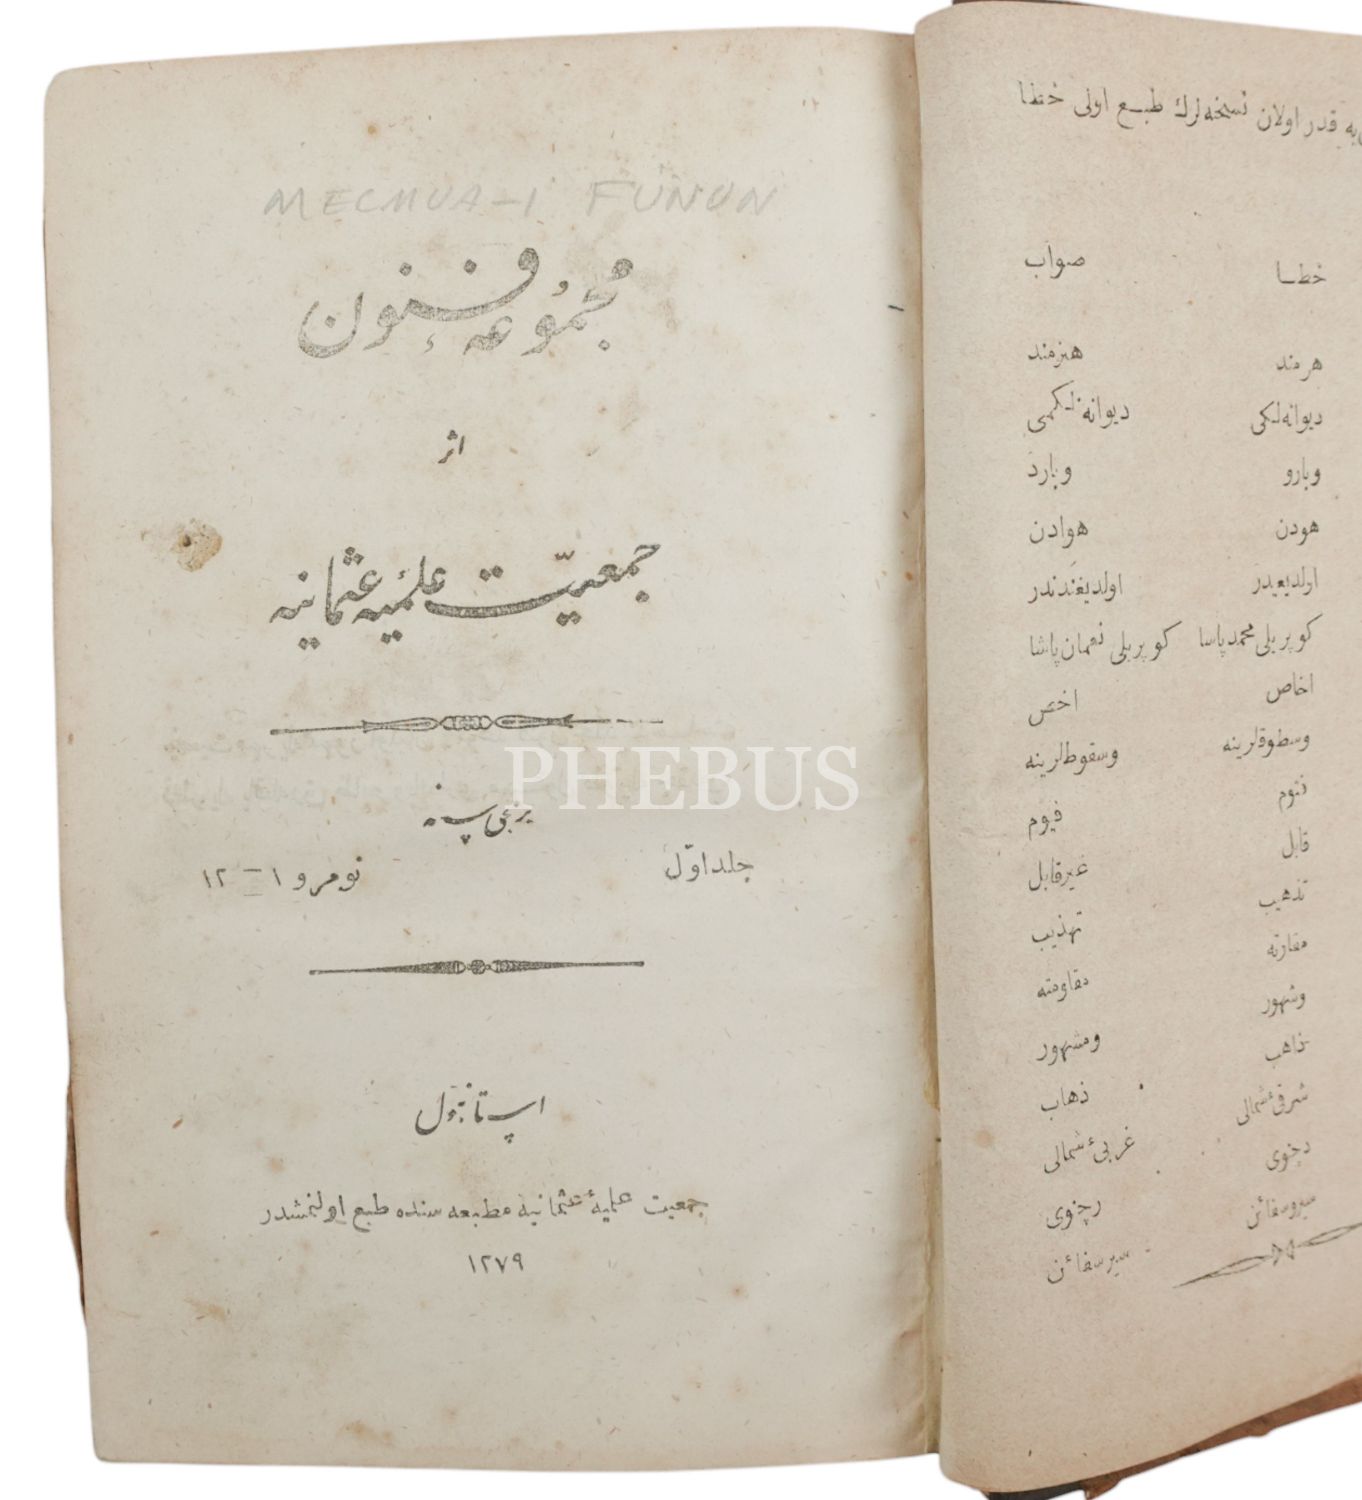 MECMUA-I FUNUN
مجموعهٔ فنون
اثر
جمعیّت علمیهٔ عثمانیه
برنجی سنه
جلد اوّل
نومرو ١ — ١٢
استانبول
جمعیت علمیهٔ عثمانیه مطبعه سنده طبع اولنمشدر
١٢٧٩
PHEBUS
یه قدر اولان نسخه لرك طبع اولی خطا
خطا صواب
هرمند هنرمند
دیوانه لکی دیوانه لکمی
وبارو وبارد
هودن هوادن
اولدیغیدر اولدیغندندر
کوپریلی محمد پاشا کوپریلی نعمان پاشا
اخاص اخص
وسطوقلرینه وسقوطلرینه
فیوم
قابل غیرقابل
تذهیب تهذیب
مقارنه مقاومته
وشهور ومشهور
ذاهب ذهاب
شرقی شمالی غربی شمالی
سیروسفائن سیرسفائن